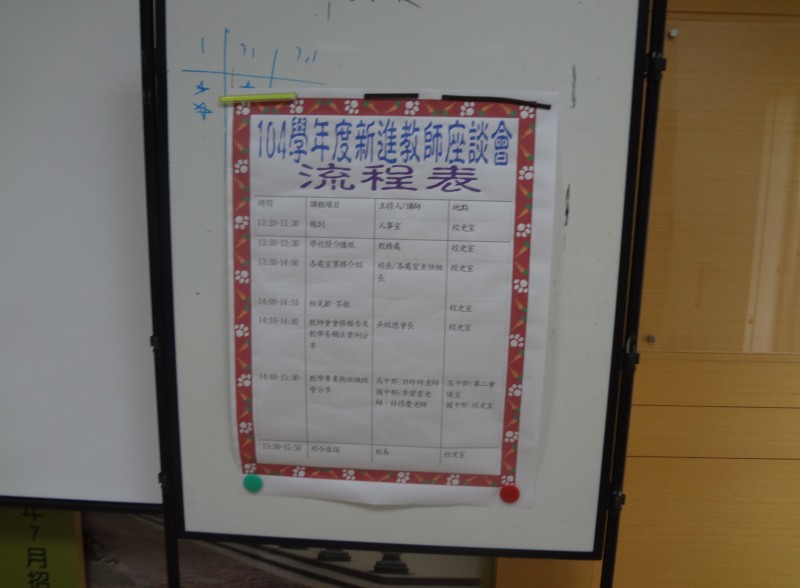 104學年度新進教師座談會
流程表
時間 課程項目 主持人/講師 地點
13:20-13:30 報到 人事室 校史室
13:30-13:30 學校簡介播放 教務處 校史室
13:30-14:00 各處室業務介紹 校長/各處室主任組長 校史室
14:00-14:10 茶敘 校史室
14:10-14:40 教師會會務報告及
教學及輔法案例分
享 會長 校史室
14:40-15:30 教學專業與班級經
營分享 高中部:老師
國中部:老
師、老師 高中部:第二會
議室
國中部:校史室
15:30-15:50 綜合座談 校長 校史室
年7月招